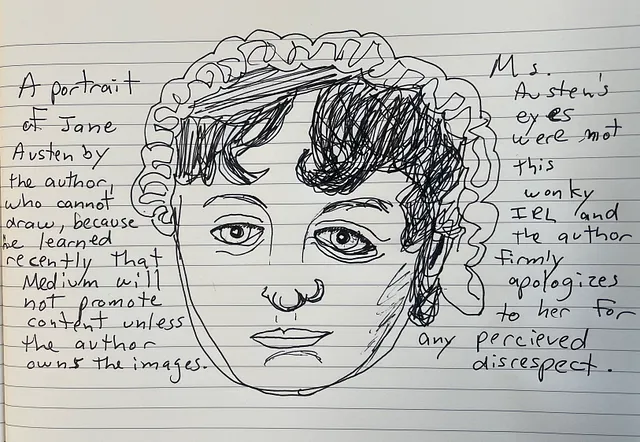 A portrait
of Jane
Austen by
the author,
who cannot
draw, because
he learned
recently that
Medium will
not promote
content unless
the author
owns the images.
Ms.
Austen's
eyes
were not
this
wonky
IRL and
the author
firmly
apologizes
to her for
any percieved
disrespect.